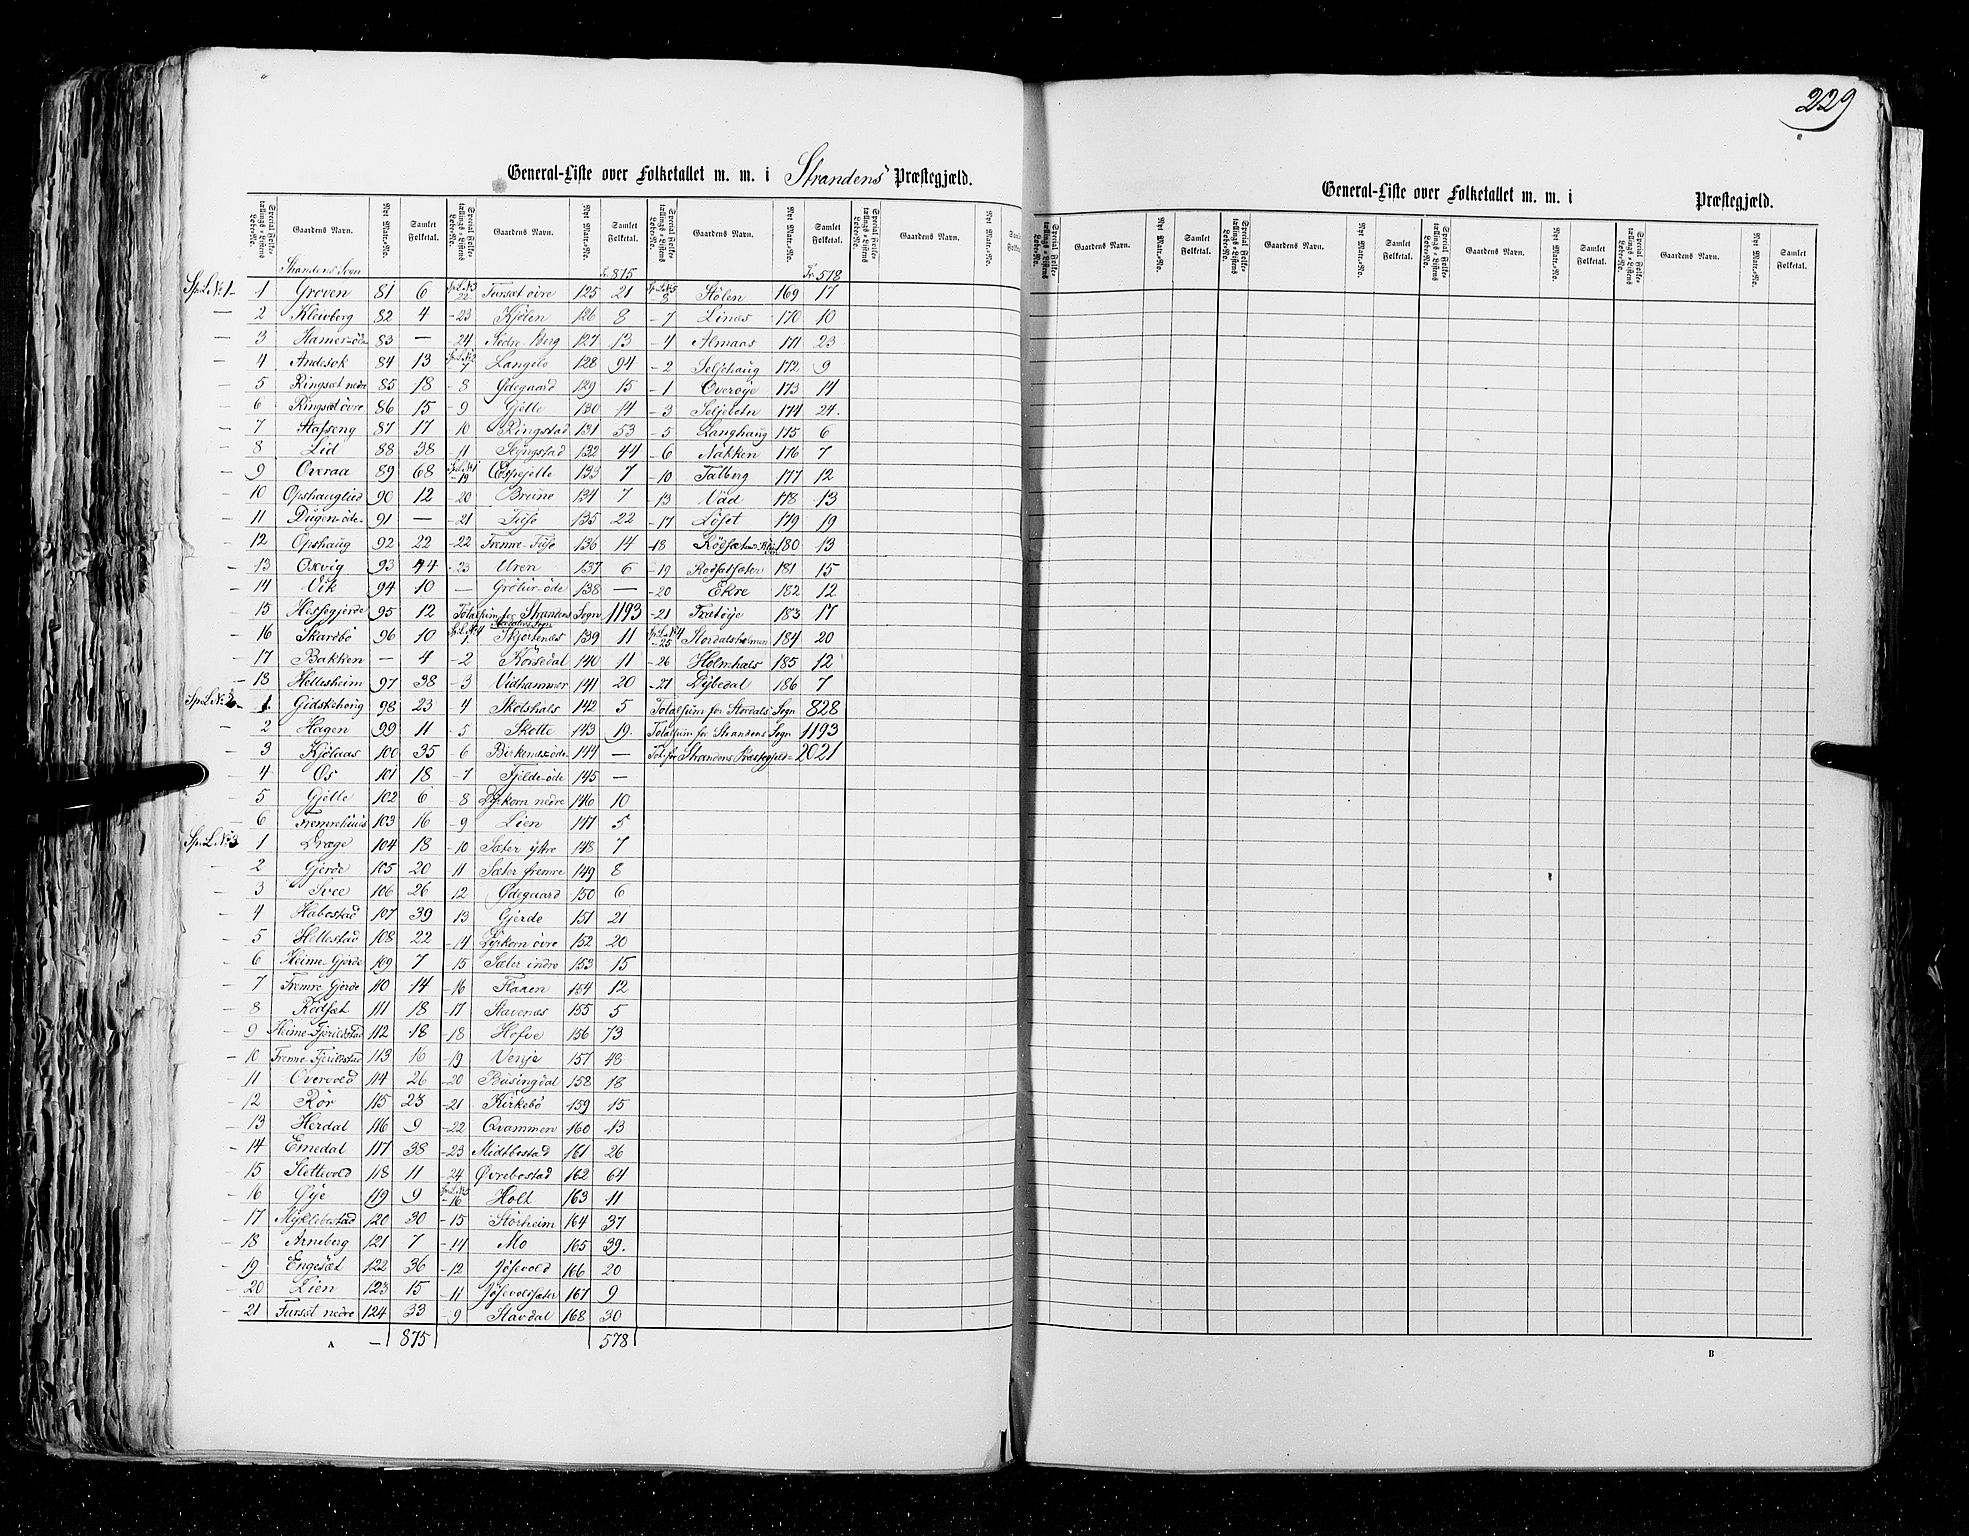 229
General-Liste over Folketallet m. m. i Strandens Præstegjæld.
General-Liste over Folketallet m. m. i Præstegjæld.
Special Folketællings-Listens Løbe-No. Gaardens Navn. Nyt Matr.-No. Samlet Folketal. Special Folketællings-Listens Løbe-No. Gaardens Navn. Nyt Matr.-No. Samlet Folketal. Special Folketællings-Listens Løbe-No. Gaardens Navn. Nyt Matr.-No. Samlet Folketal. Special Folketællings-Listens Løbe-No. Gaardens Navn. Nyt Matr.-No. Samlet Folketal.
Strandens Sogn
Sp. L. No 1 - 1 Groven 81 6
- 2 Kleivberg 82 4
- 3 Hamer-öde 83 —
- 4 Andesok 84 13
- 5 Ringsæt nedre 85 18
- 6 Ringsæt övre 86 15
- 7 Stafseng 87 17
- 8 Lid 88 38
- 9 Overaa 89 68
- 10 Opshauglied 90 12
- 11 Dugen-öde 91 —
- 12 Opshaug 92 22
- 13 Oxvig 93 44
- 14 Vik 94 10
- 15 Hessegjerde 95 12
- 16 Skarbö 96 10
- 17 Bakken — 4
- 18 Hellesheim 97 38
Sp. L. No 2 - 1 Gidskehoug 98 23
- 2 Hægen 99 11
- 3 Kjölaas 100 35
- 4 Os 101 18
- 5 Gjelle 102 6
- 6 Fremrehuus 103 16
Sp. L. No 3 1 Dræge 104 18
- 2 Gjerde 105 20
- 3 Svee 106 26
- 4 Habostad 107 39
- 5 Hellestad 108 22
- 6 Heime-Gjerde 109 7
- 7 Fremre Gjerde 110 14
- 8 Rödsæt 111 18
- 9 Heime-Fjerildstad 112 18
- 10 Fremre-Fjerildstad 113 16
- 11 Overvold 114 26
- 12 Rör 115 23
- 13 Herdal 116 9
- 14 Emedal 117 38
- 15 Slettevold 118 11
- 16 Øye 119 9
- 17 Myklebostad 120 30
- 18 Arneberg 121 7
- 19 Engesæt 122 36
- 20 Lien 123 15
- 21 Fursæt nedre 124 33
A — 875
Tr. 875
Sp. L. No 3 22 Fursæt övre 125 21
- 23 Kjölen 126 8
- 24 Nedre-Berg 127 13
Sp. L. No 2 7 Langelo 128 94
- 8 Ødegaard 129 15
- 9 Gjelle 130 14
10 Ringstad 131 53
- 11 Slyngstad 132 44
Sp. L. No 1 - 19 Espegjelle 133 7
- 20 Brune 134 7
- 21 Tuse 135 22
- 22 Fremre-Tuse 136 14
- 23 Uren 137 6
— Grötur-öde 138 —
Totalsum for Strandens Sogn 1193
Stordalens Sogn
Sp. L. No 4 1 Skjortenæs 139 11
- 2 Korsedal 140 11
- 3 Vidhammer 141 20
4 Skotshals 142 5
- 5 Skotte 143 19
6 Birkenæs-öde 144 —
- 7 Fjelde-öde 145 —
- 8 Dyrkorn nedre 146 10
- 9 Lien 147 5
- 10 Sæter ytre 148 7
11 Sæter fremre 149 8
12 Ødegaard 150 6
13 Gjerde 151 21
- 14 Dyrkorn övre 152 20
15 Sæter indre 153 15
- 16 Flaaen 154 12
- 17 Stavenæs 155 5
- 18 Hofve 156 73
- 19 Venje 157 48
- 20 Busingdal 158 18
- 21 Kirkebö 159 15
- 22 Qvammen 160 13
- 23 Midtbostad 161 26
- 24 Øvrebostad 162 64
Sp. L. No 5 - 16 Holt 163 11
- 15 Storheim 164 37
- 14 Mo 165 39.
- 12 Jösevold 166 20
- 11 Jösevoldsæter 167 9
- 9 Stavdal 168 30
578
Tr. 578
Sp. L. No 5 8 Stölen 169 17
- 7 Linæs 170 10
- 4 Almaas 171 23
- 2 Seljehaug 172 9
- 1 Overöye 173 14
- 3 Seljebotn 174 24.
- 5 Langhaug 175 6
- 6 Nakken 176 7
- 10 Talberg 177 12
- 13 Vad 178 13
- 17 Löset 179 19
- 18 Rödsæt 180 13
- 19 Rodsætsæter 181 15
- 20 Ekre 182 12
- 21 Tratöye 183 17
Sp. L. No 4 - 25 Stordalsholmen 184 20
- 26 Holmhals 185 12
- 27 Dybedal 186 7
Totalsum for Stordals Sogn 828
Totalsum for Strandens Sogn 1193
Tot. for Strandens Præstegjeld = 2021
B